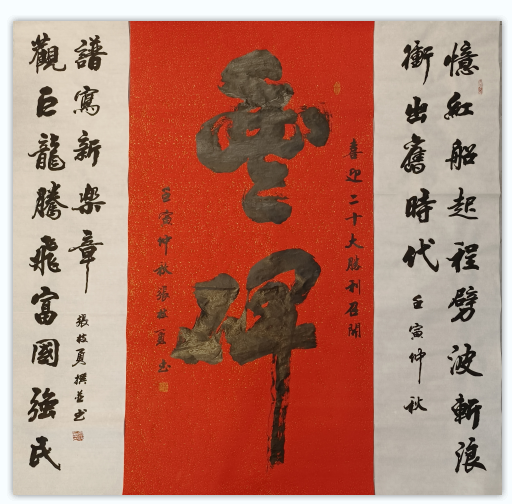 憶紅船起程劈波斬浪
衝出舊時代
壬寅仲秋
喜迎二十大勝利召開
豐碑
壬寅仲秋張枝勇書
觀巨龍騰飛富國強民
譜寫新樂章
張枝勇撰並書